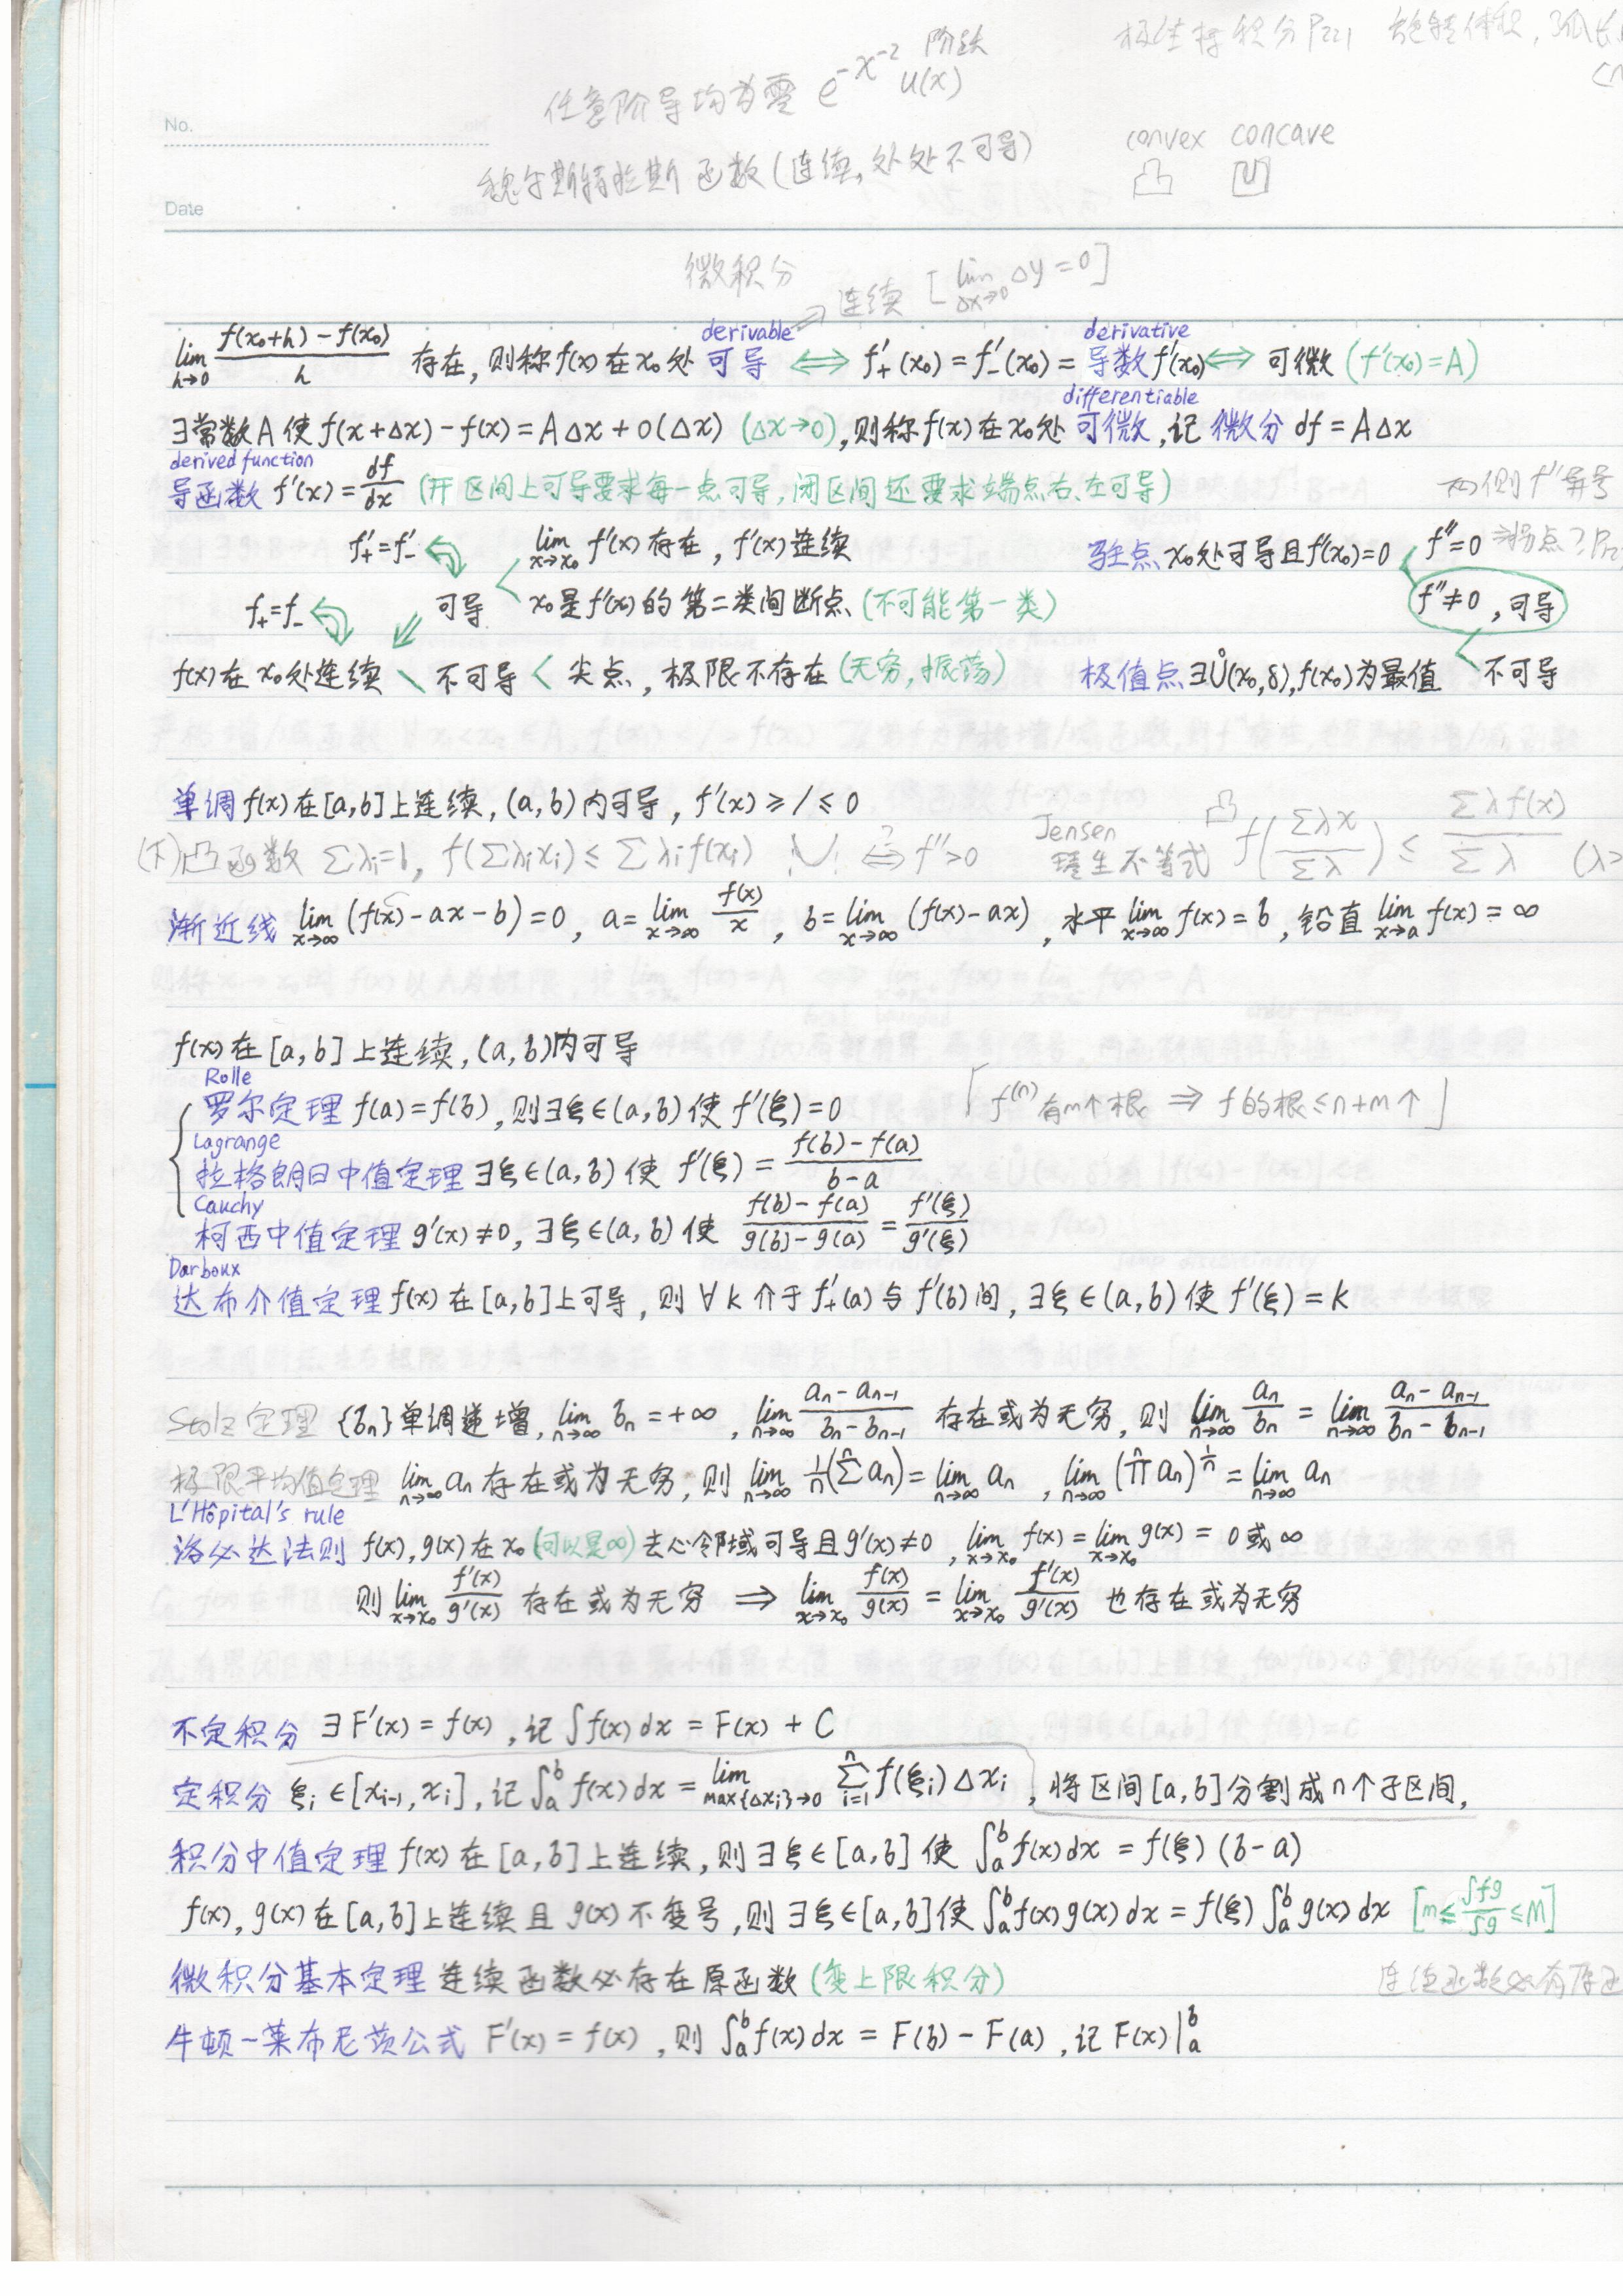 极坐标积分 P221 绕转体积, 弧长
任意阶导均为零 e^{-x^{-2}} u(x) 阶跃
No.
convex concave
魏尔斯特拉斯函数(连续,处处不可导)
Date
微积分
⇒ 连续 [lim_{Δx→0} Δy = 0]
derivable derivative
lim_{h→0} (f(x₀+h) - f(x₀))/h 存在, 则称f(x)在x₀处可导 ⟺ f'₊(x₀) = f'₋(x₀) = 导数f'(x₀) ⟺ 可微 (f'(x₀)=A)
differentiable
∃常数A使f(x+Δx) - f(x) = AΔx + o(Δx) (Δx→0), 则称f(x)在x₀处可微, 记 微分 df = AΔx
derived function
导函数 f'(x) = df/dx (开区间上可导要求每一点可导, 闭区间还要求端点右、左可导)
两侧f''异号
f'₊=f'₋ lim_{x→x₀} f'(x)存在, f'(x)连续 驻点 x₀处可导且f'(x₀)=0 f''=0 ⇒拐点?
f₊=f₋ 可导 x₀是f'(x)的第二类间断点(不可能第一类) f''≠0, 可导
f(x)在x₀处连续 不可导 < 尖点, 极限不存在(无穷,振荡) 极值点∃Ů(x₀,δ), f(x₀)为最值 不可导
单调 f(x)在[a,b]上连续, (a,b)内可导, f'(x) ≥/≤ 0
(下)凸函数 Σλᵢ=1, f(Σλᵢxᵢ) ≤ Σλᵢf(xᵢ) ⟺? f''>0 Jensen 琴生不等式 f(Σλx/Σλ) ≤ Σλf(x)/Σλ (λ>
渐近线 lim_{x→∞} (f(x)-ax-b)=0, a=lim_{x→∞} f(x)/x, b=lim_{x→∞} (f(x)-ax), 水平 lim_{x→∞} f(x)=b, 铅直 lim_{x→a} f(x)=∞
f(x)在[a,b]上连续, (a,b)内可导
Rolle
罗尔定理 f(a)=f(b), 则∃ξ∈(a,b)使f'(ξ)=0 「f^{(n)}有m个根 ⇒ f的根≤n+m个」
Lagrange
拉格朗日中值定理 ∃ξ∈(a,b)使 f'(ξ) = (f(b)-f(a))/(b-a)
Cauchy
柯西中值定理 g'(x)≠0, ∃ξ∈(a,b)使 (f(b)-f(a))/(g(b)-g(a)) = f'(ξ)/g'(ξ)
Darboux
达布介值定理 f(x)在[a,b]上可导, 则∀k介于f'₊(a)与f'(b)间, ∃ξ∈(a,b)使f'(ξ)=k
Stolz定理 {bₙ}单调递增, lim_{n→∞} bₙ=+∞, lim_{n→∞} (aₙ-aₙ₋₁)/(bₙ-bₙ₋₁) 存在或为无穷, 则 lim_{n→∞} aₙ/bₙ = lim_{n→∞} (aₙ-aₙ₋₁)/(bₙ-bₙ₋₁)
极限平均值定理 lim_{n→∞} aₙ存在或为无穷, 则 lim_{n→∞} 1/n(Σⁿaₙ) = lim_{n→∞} aₙ, lim_{n→∞} (Πⁿaₙ)^{1/n} = lim_{n→∞} aₙ
L'Hôpital's rule
洛必达法则 f(x), g(x)在x₀(可以是∞)去心邻域可导且g'(x)≠0, lim_{x→x₀} f(x) = lim_{x→x₀} g(x) = 0或∞
则 lim_{x→x₀} f'(x)/g'(x) 存在或为无穷 ⇒ lim_{x→x₀} f(x)/g(x) = lim_{x→x₀} f'(x)/g'(x) 也存在或为无穷
不定积分 ∃F'(x) = f(x), 记∫f(x)dx = F(x) + C
定积分 ξᵢ∈[xᵢ₋₁, xᵢ], 记∫ₐᵇ f(x)dx = lim_{max{Δxᵢ}→0} Σ_{i=1}^{n} f(ξᵢ)Δxᵢ, 将区间[a,b]分割成n个子区间,
积分中值定理 f(x)在[a,b]上连续, 则∃ξ∈[a,b]使 ∫ₐᵇ f(x)dx = f(ξ)(b-a)
f(x), g(x)在[a,b]上连续且g(x)不变号, 则∃ξ∈[a,b]使∫ₐᵇ f(x)g(x)dx = f(ξ)∫ₐᵇ g(x)dx [m≤ ∫fg/∫g ≤M]
微积分基本定理 连续函数必存在原函数(变上限积分) 连续函数必有原函
牛顿-莱布尼茨公式 F'(x) = f(x), 则 ∫ₐᵇ f(x)dx = F(b) - F(a), 记 F(x)|ₐᵇ